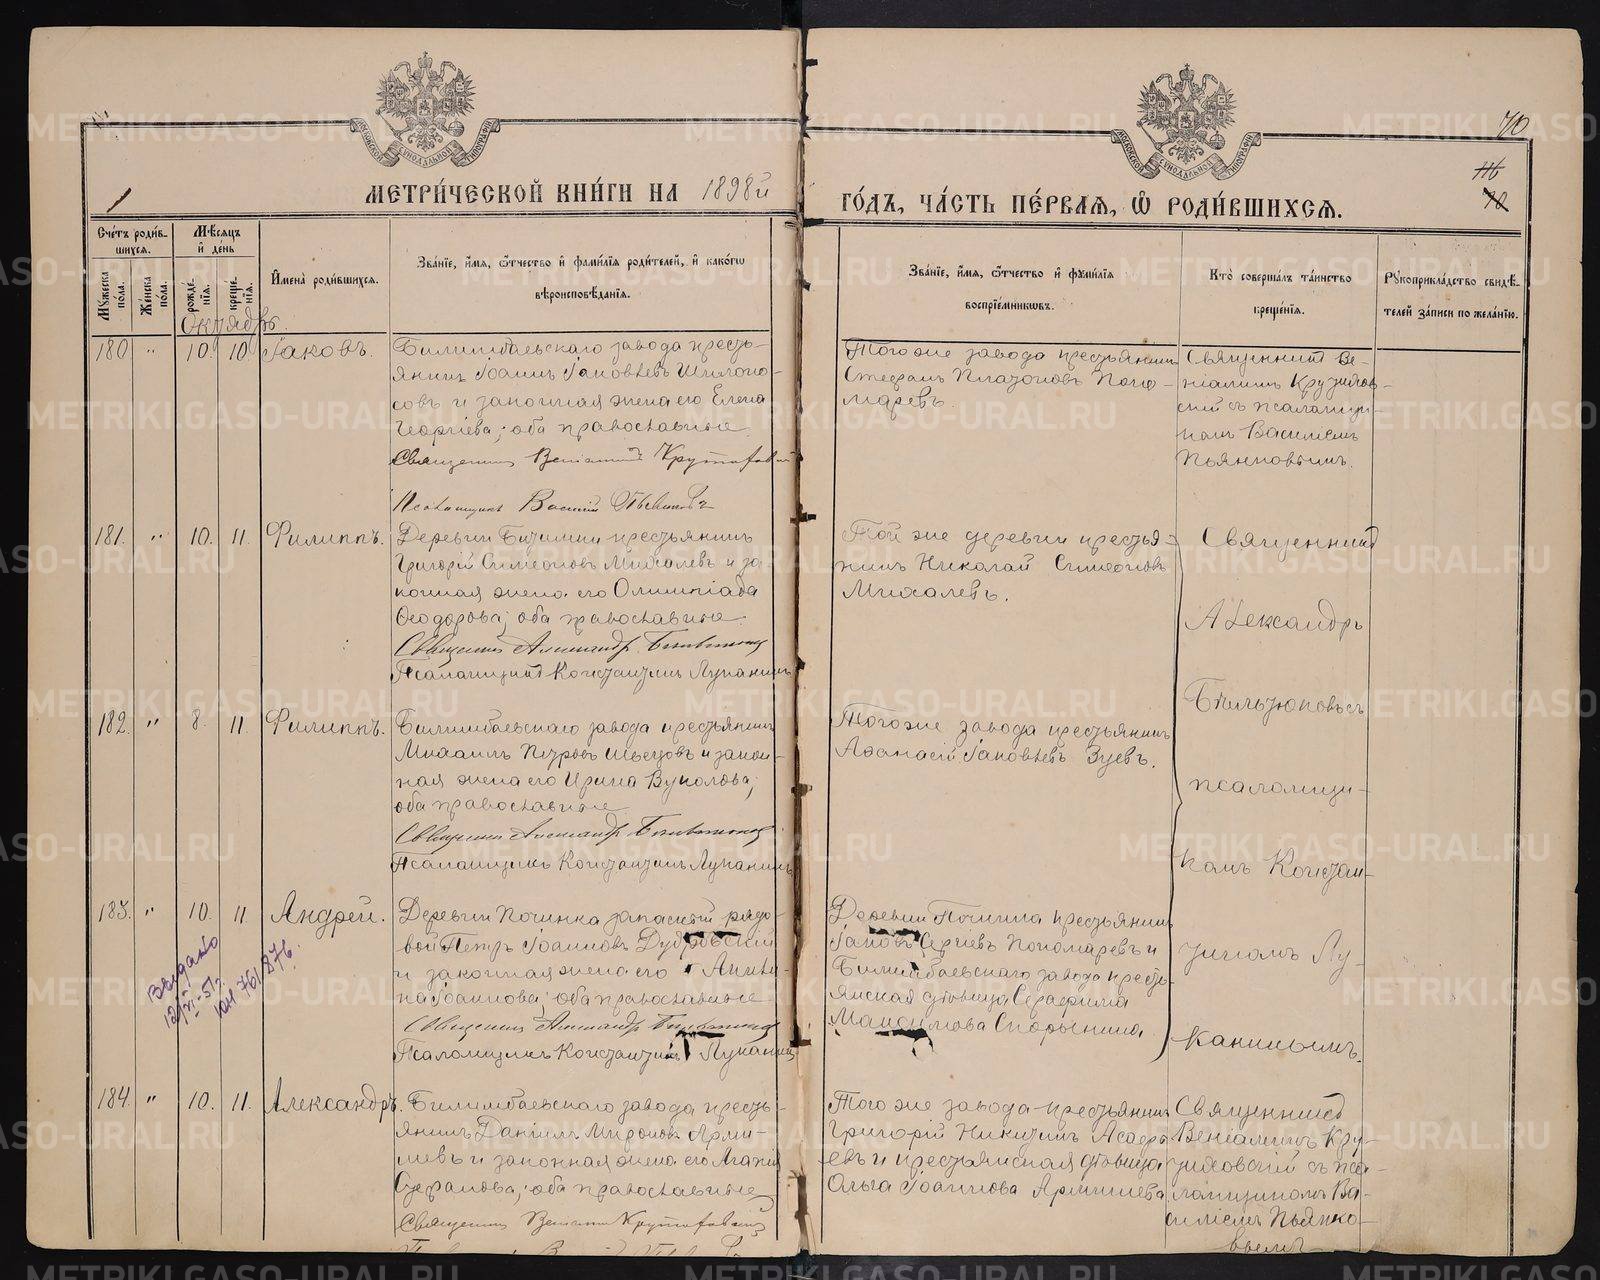 70
116
70
1
МЕТРИ́ЧЕСКОЙ КНИ́ГИ НА 1898й
ГО́ДЪ, ЧА́СТЬ ПЕ́РВАЯ, Ѡ РОДИ́ВШИХСЯ.
Сче́тъ роди́в-
шихся.
Мꙋжеска по́ла.
Же́нска по́ла.
Мѣ́сяцъ и де́нь
рожде́-
нїя.
креще́-
нїя.
Имена̀ роди́вшихся.
Зва́нїе, и́мя, ѻ́тчество и фами́лїя роди́телей, и како́гѡ
вѣроисповѣ́данїя.
Зва́нїе, и́мя, ѻ́тчество и фами́лїя
воспрїе́мникѡвъ.
Кто̀ соверша́лъ та́инство
креще́нїя.
Рꙋкоприкла́дство свидѣ́-
телей за́писи по жела́нїю.
Октябрь.
180 " 10. 10. Іаковъ.
Билимбаевскаго завода кресть-
янинъ Іоаннъ Іаковлевъ Шилоно-
совъ и законная жена его Елена
Георгіева; оба православные
Священникъ Веніаминъ
Псаломщикъ Василій Пьянковъ
Того же завода крестьянинъ
Стефанъ Платоновъ Поно-
маревъ.
Священникъ Ве-
ніаминъ
скій съ псаломщи-
комъ Василіемъ
Пьянковымъ.
181. " 10. 11. Филиппъ.
Деревни Битимки крестьянинъ
Григорій Симеоновъ Михалевъ и за-
конная жена его Олимпіада
Ѳеодорова; оба православные
Священникъ Александръ
Псаломщикъ Константинъ Луканинъ
Той же деревни крестья-
нинъ Николай Симеоновъ
Михалевъ.
Священникъ
Александръ
съ
псаломщи-
комъ Констан-
тиномъ Лу-
канинымъ.
182. " 8. 11. Филиппъ.
Билимбаевскаго завода крестьянинъ
Михаилъ Петровъ Швецовъ и закон-
ная жена его Ирина Вуколова;
оба православные
Священникъ Александръ
Псаломщикъ Константинъ Луканинъ
Того же завода крестьянинъ
Аѳанасій Іаковлевъ Зуевъ.
183. " 10. 11. Андрей.
Деревни Починка запасный рядо-
вой Петръ Іоанновъ Дубровскій
и законная жена его
на Іоаннова; оба православные
Священникъ Александръ
Псаломщикъ Константинъ Луканинъ
Деревни Починка крестьянинъ
Іаковъ Сергіевъ Пономаревъ и
Билимбаевскаго завода кресть-
янская дѣвица Серафима
Максимова Спорынина
Выдано
184. " 10. 11. Александръ.
Билимбаевскаго завода кресть-
янинъ Даніилъ Мироновъ Арми-
шевъ и законная жена его Агапія
Стефанова; оба православные
Священникъ Веніаминъ
Того же завода крестьянинъ
Григорій Никитинъ Асаф-
евъ и крестьянская дѣвица
Ольга Іоаннова Армишева
Священникъ
Веніаминъ
съ пса-
ломщикомъ Ва-
силіемъ Пьянко-
вымъ
METRIKI.GASO-URAL.RU